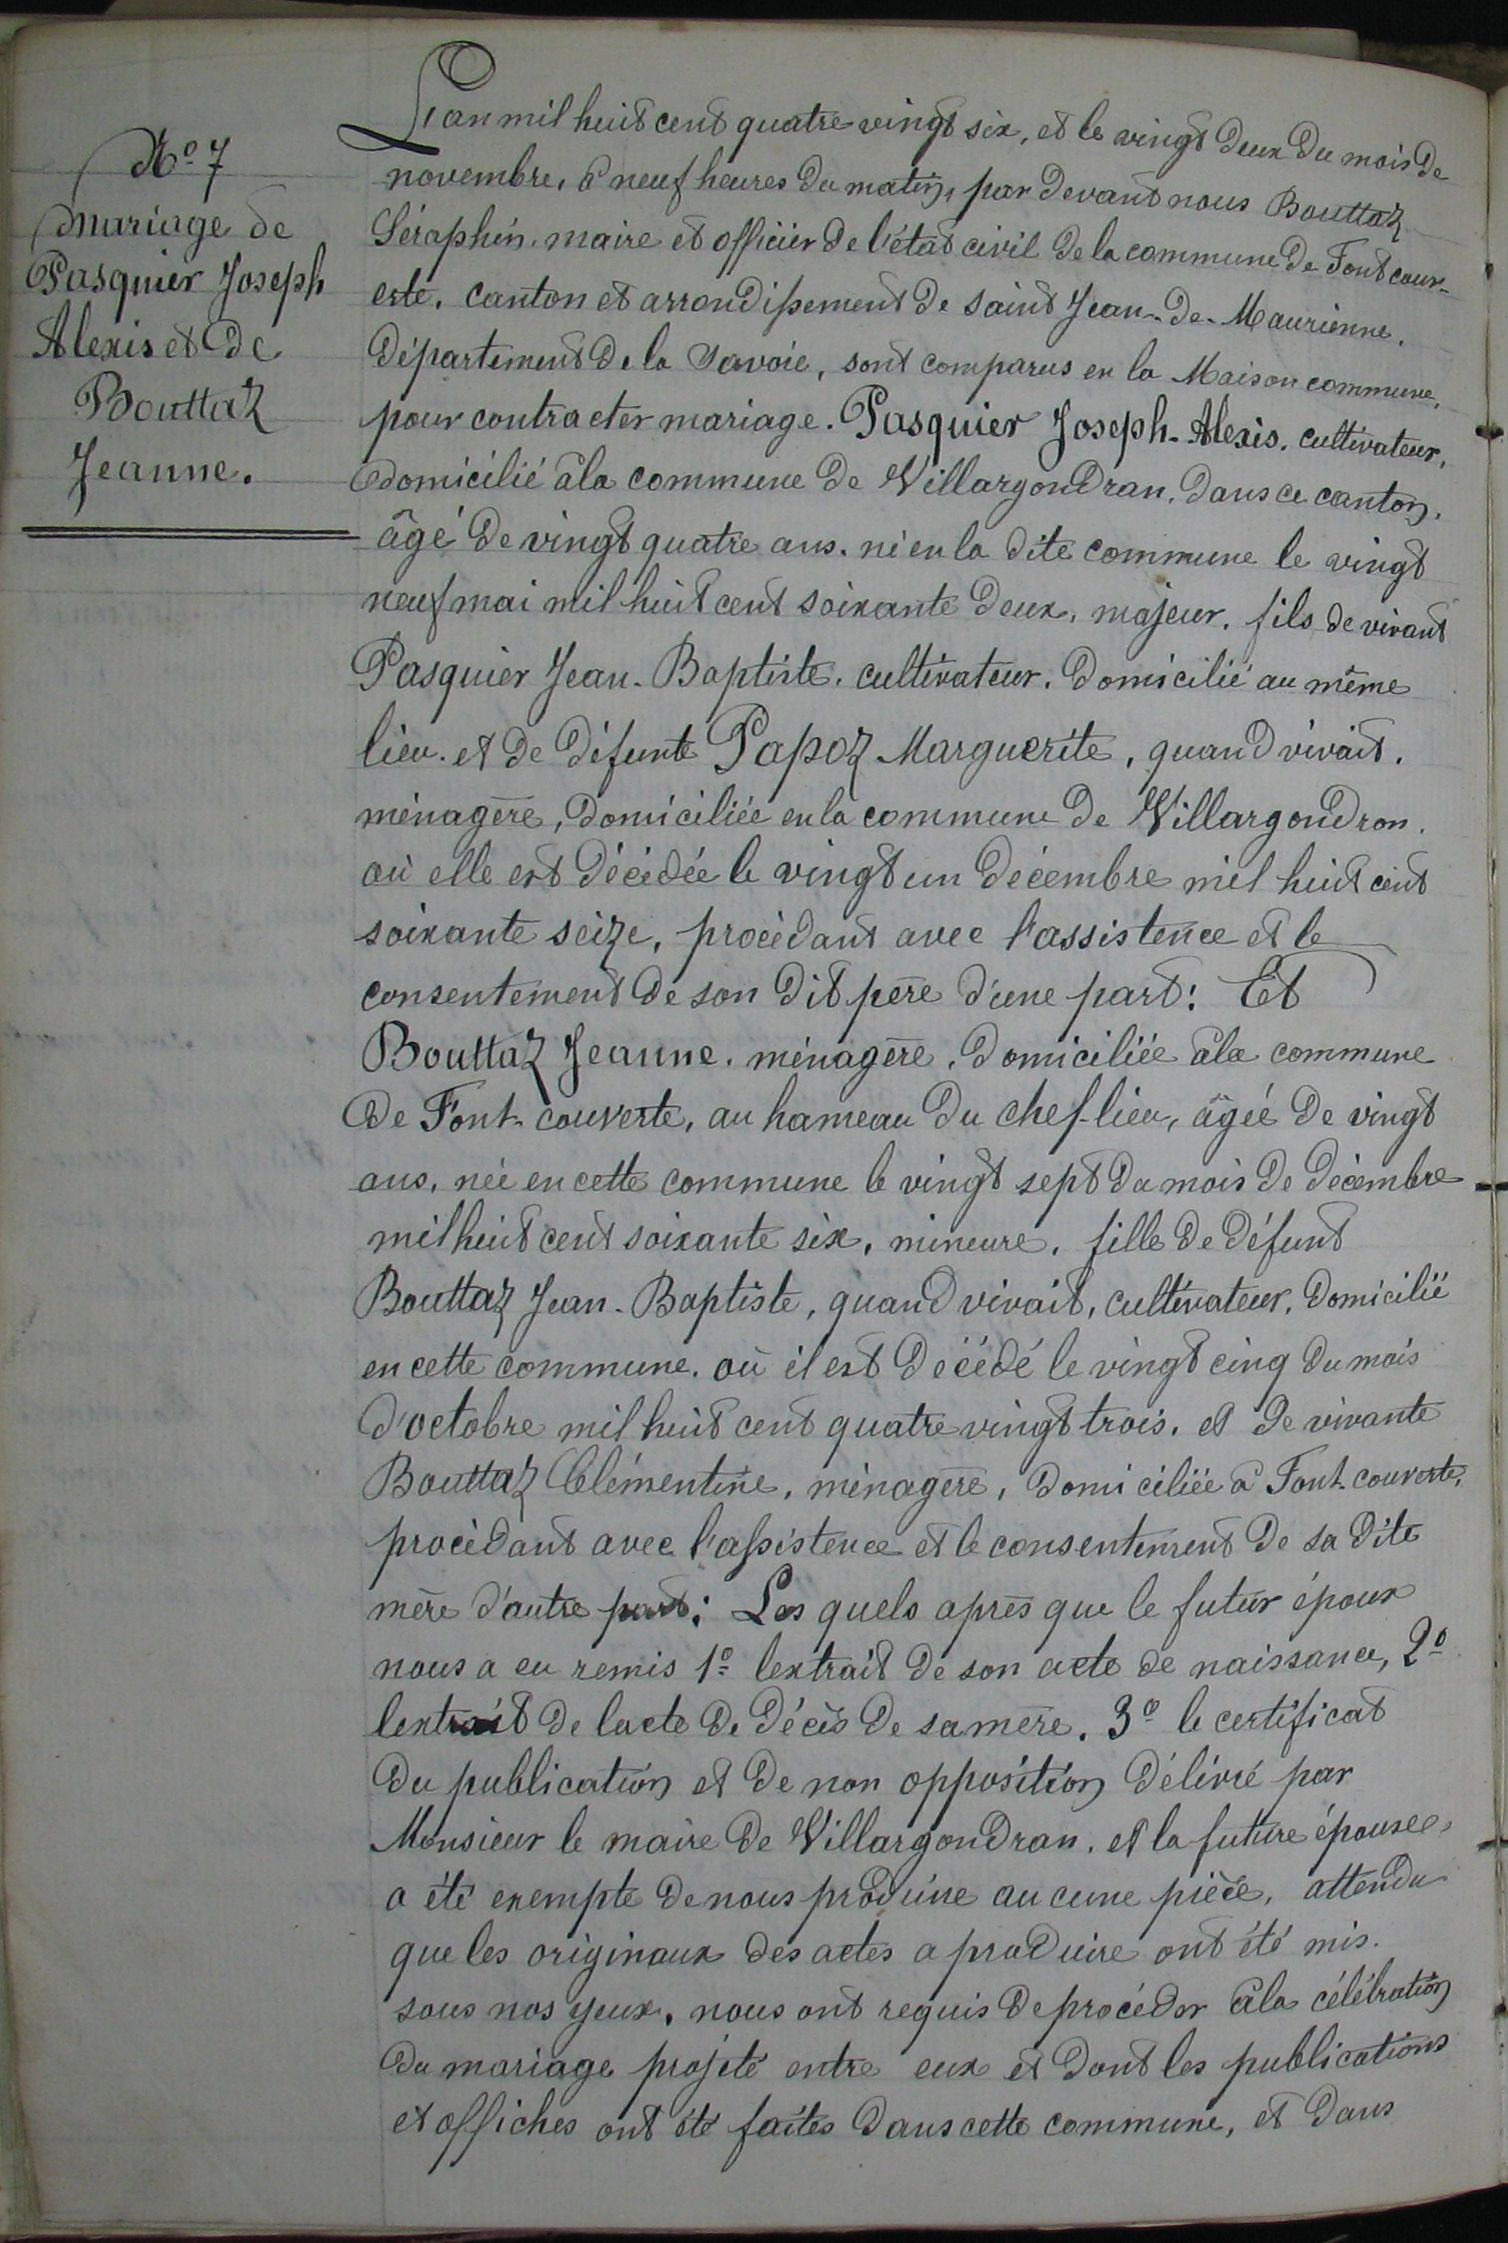 N.º 7
Mariage de
Pasquier Joseph
Alexis et de
Bouttaz
Jeanne.
L'an mil huit cent quatre vingt six, et le vingt deux du mois de
novembre, à neuf heures du matin, par devant nous Bouttaz
Séraphin, maire et officier de l'état civil de la commune de Fontcouv-
erte, canton et arrondissement de saint Jean-de-Maurienne,
département de la Savoie, sont comparus en la Maison commune,
pour contracter mariage. Pasquier Joseph-Alexis, cultivateur,
domicilié à la commune de Villargondran, dans ce canton,
âgé de vingt quatre ans, né en la dite commune le vingt
neuf mai mil huit cent soixante deux, majeur, fils de vivant
Pasquier Jean-Baptiste, cultivateur, domicilié au même
lieu, et de défunte Papoz Marguerite, quand vivait,
ménagère, domiciliée en la commune de Villargondron,
où elle est décédée le vingt un décembre mil huit cent
soixante seize, procédant avec l'assistence et le
consentement de son dit père d'une part: Et
Bouttaz Jeanne, ménagère, domiciliée à la commune
de Font-couverte, au hameau du chef-lieu, âgée de vingt
ans, née en cette commune le vingt sept du mois de décembre
mil huit cent soixante six, mineure, fille de défunt
Bouttaz Jean-Baptiste, quand vivait, cultivateur, domicilié
en cette commune, où il est décédé le vingt cinq du mois
d'octobre mil huit cent quatre vingt trois, et de vivante
Bouttaz Clémentine, ménagère, domiciliée à Font-couverte,
procèdant avec l'assistence et le consentement de sa dite
mère d'autre part: Les quels après que le futur époux
nous a eu remis 1º lextrait de son acte de naissance, 2º
lextrait de lacte de décès de sa mère, 3º le certificat
du publication et de non opposition délivré par
Monsieur le maire de Villargondran, et la future épousee,
a été exempte de nous produire aucune pièce, attendu
que les originaux des actes a produire ont été mis
sous nos yeux, nous ont requis de procéder à la célébration
du mariage projeté entre eux et dont les publications
et affiches ont été faites dans cette commune, et dans